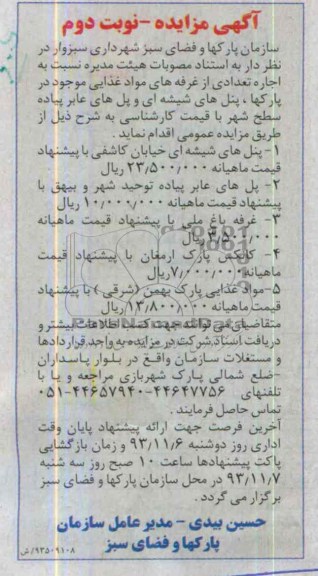 آگهی مزایده -نوبت دوم
سازمان پارکها و فضای سبز شهرداری سبزوار در
نظر دار به استناد مصوبات هیئت مدیره نسبت به
اجاره تعدادی از غرفه های مواد غذایی موجود در
پارکها ، پنل های شیشه ای و پل های عابر پیاده
سطح شهر با قیمت کارشناسی به شرح ذیل از
طریق مزایده عمومی اقدام نماید .
۱- پنل های شیشه ای خیابان کاشفی با پیشنهاد
قیمت ماهیانه ۲۳٫۵۰۰٫۰۰۰ ریال
۲- پل های عابر پیاده توحید شهر و بیهق با
پیشنهاد قیمت ماهیانه ۱۰٫۰۰۰٫۰۰۰ ریال
۳- غرفه باغ ملی با پیشنهاد قیمت ماهیانه
۳٫۵۰۰٫۰۰۰ ریال
۴- کانکس پارک ارمغان با پیشنهاد قیمت
ماهیانه ۷٫۰۰۰٫۰۰۰ ریال
۵-مواد غذایی پارک بهمن (شرقی) با پیشنهاد
قیمت ماهیانه ۱۳٫۸۰۰٫۰۰۰ ریال
متقاضیان می توانند جهت کسب اطلاعات بیشتر و
دریافت اسناد شرکت در مزایده به واحد قراردادها
و مستغلات سازمان واقع در بلوار پاسداران
-ضلع شمالی پارک شهربازی مراجعه و یا با
تلفنهای ۴۴۶۴۷۷۵۶-۴۴۶۵۷۹۴۰-۰۵۱
تماس حاصل فرمایند .
آخرین فرصت جهت ارائه پیشنهاد پایان وقت
اداری روز دوشنبه ۹۳٫۱۱٫۶ و زمان بازگشایی
پاکت پیشنهادها ساعت ۱۰ صبح روز سه شنبه
۹۳٫۱۱٫۷ در محل سازمان پارکها و فضای سبز
برگزار می گردد .
حسین بیدی - مدیر عامل سازمان
پارکها و فضای سبز
۹۳۵۰۹۱۰۸/ش